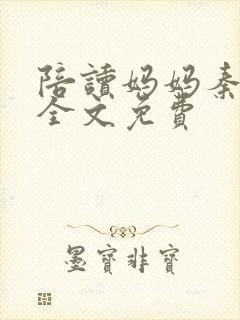 陪讀媽媽秦
全文免費
墨寶非寶